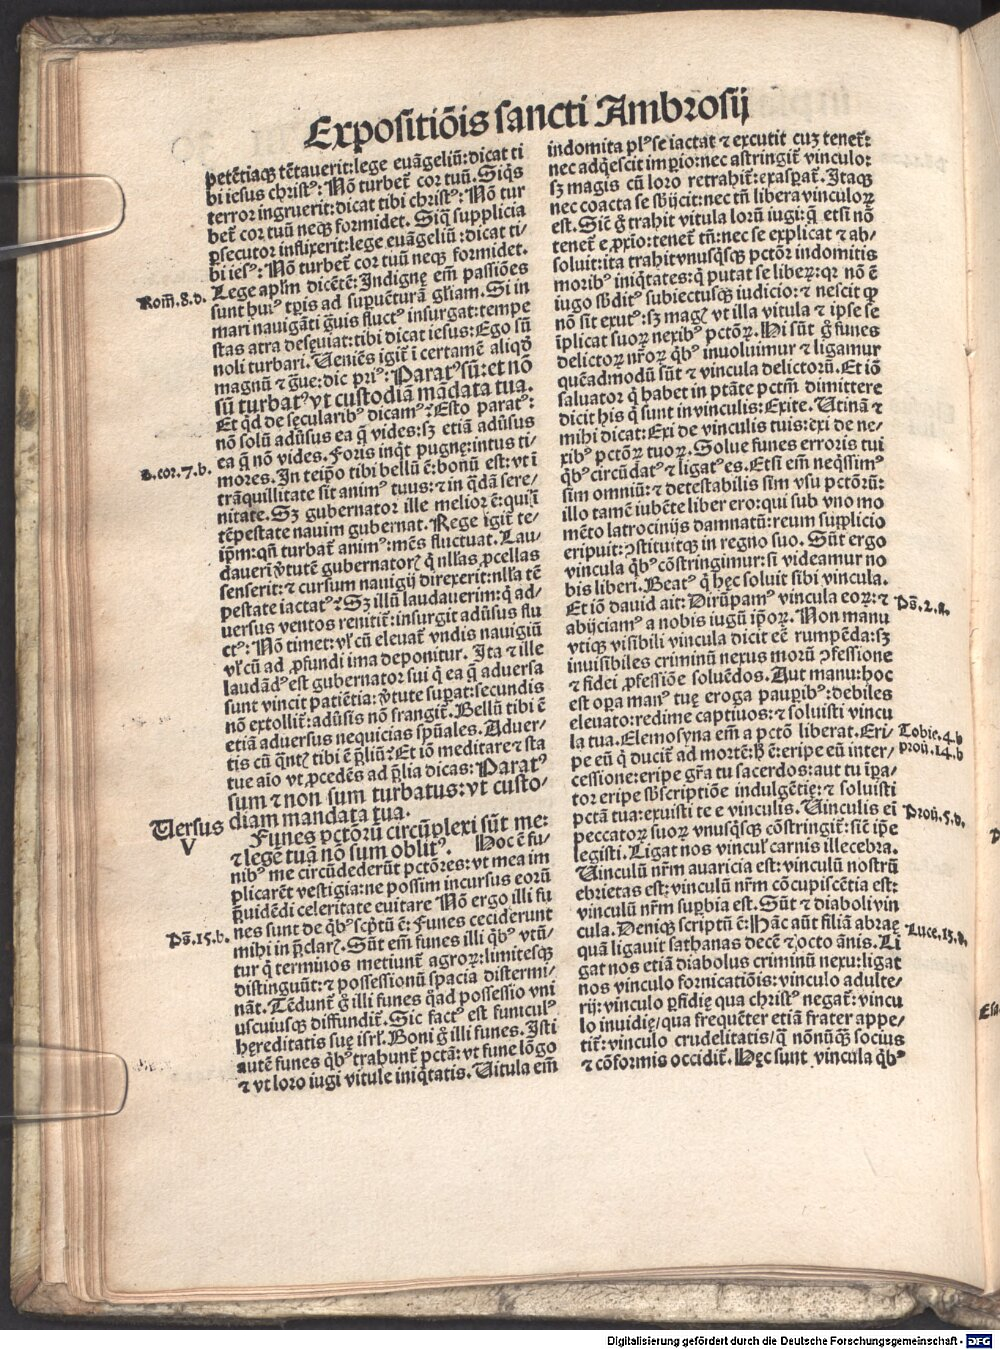 Expositiōis sancti Ambrosij
petētiaqꝫ tētauerit:lege euāgeliū:dicat ti
bi iesus christꝰ: Nō turbet̄ cor tuū. Siq̇s
terror ingruerit:dicat tibi christꝰ: Nō tur
bet̄ cor tuū neqꝫ formidet. Siq̄ supplicia
ꝑsecutor inflixerit:lege euāgeliū:dicat ti-
bi iesꝰ: Nō turbet̄ cor tuū neqꝫ formidet.
Lege apłm dicētē: Indignę em̄ passiōes
Rom̄.8.d.
sunt huiꝰ tꝑis ad supuēturā gl̄iam. Si in
mari nauigāti g̈uis fluctꝰ insurgat:tempe
stas atra deseuiat:tibi dicat iesus: Ego sū
noli turbari. Ueniēs igit̄ ī certamē aliqd̄
magnū ⁊ g̈ue:dic pr̄i: Paratꝰ sū:et nō
sū turbatꝰ vt custodiā mādata tua.
Et qd̄ de sęcularibꝰ dicamꝰ? Esto paratꝰ:
nō solū aduersus ea q̄ vides:sꝫ etiā adūsus
ea q̄ nō vides. Foris inqt̄ pugnę:intus ti-
2.cor.7.b.
mores. In teīpo tibi bellū ē: bonū est:vt ī
trāquillitate sit animꝰ tuus:⁊ in qdā sere/
nitate. Sꝫ gubernator ille melior ē:qui ī
tēpestate nauim gubernat. Rege igit̄ te/
ip̄m:qn̄ turbat̄ animꝰ:mēs fluctuat. Lau/
daueri v̄tutē gubernatorꝭ q̄ nłłas ꝓcellas
senserit:⁊ cursum nauigij direxerit:nłła tē
pestate iactatꝰ? Sꝫ illū laudauerim:q̄ ad/
uersus ventos renitit̄:insurgit adūsus flu
ctꝰ: Nō timet:vł cū eleuat̄ vndis nauigiū
vł cū ad ꝓfundi ima deponitur. Ita ⁊ ille
laudādꝰ est gubernator sui q̄ ea q̄ aduersa
sunt vincit patiētia:v̄tute suꝑat:secundis
nō extollit̄:adūsis nō frangit̄. Bellū tibi ē
etiā aduersus nequicias sp̄uales. Aduer-
tis cū qn̄tꝭ tibi ē p̄liū? Et iō meditare ⁊ sta
tue aīo vt ꝓcedēs ad p̄lia dicas: Paratꝰ
sum ⁊ non sum turbatus:vt custo-
Uersus diam mandata tua.
V
Funes pctōrū circūplexi sūt me:
⁊ legē tuā nō sum oblitꝰ. Hoc ē fu-
nibꝰ me circūdederūt pctōres:vt mea im
plicarēt vestigia:ne possim incursus eorū
p̄uidēdi celeritate euitare Nō ergo illi fu
nes sunt de qbꝰ scptū ē: Funes ceciderunt
Ps̄.15.b.
mihi in p̄clarꝭ. Sūt em̄ funes illi qbꝰ vtū/
tur q̄ terminos metiunt̄ agroꝝ:limitesqꝫ
distinguūt:⁊ possessionū spacia distermi/
nāt. Tēdunt̄ ḡ illi funes q̄ad possessio vni
uscuiusqꝫ diffundit̄. Sic factꝰ est funiculꝰ
hęreditatis suę isrł. Boni ḡ illi funes. Isti
autē funes qbꝰ trabunt̄ pctā:vt fune lōgo
⁊ vt loro iugi vitule iniqtatis. Uitula em̄
indomita plꝰ se iactat ⁊ excutit cuꝫ tenet̄:
nec adq̇escit imꝑio:nec astringit̄ vinculo:
sꝫ magis cū loro retrahit̄:exasꝑat̄. Itaqꝫ
nec coacta se sb̄ijcit:nec tn̄ libera vinculoꝝ
est. Sic̄ ḡ trahit vitula lorū iugi:q̄ etsi nō
tenet̄ e ꝓxio:tenet̄ tn̄:nec se explicat ⁊ ab/
soluit:ita trahit vnusqsqꝫ pctōr indomitis
moribꝰ iniqtates:q̄ putat se liberꝝ:qꝛ nō ē
iugo sb̄ditꝰ subiectusqꝫ iudicio:⁊ nescit qꝫ
nō sit exutꝰ:sꝫ magꝭ vt illa vitula ⁊ ipse se
īplicat suoꝝ nexibꝰ pctōꝝ. Hi sūt ḡ funes
delictoꝝ nr̄oꝝ qbꝰ inuoluimur ⁊ ligamur
quēadmodū sūt ⁊ vincula delictorū. Et iō
saluator q̄ habet in ptāte pctm̄ dimittere
dicit his q̄ sunt in vinculis: Exite. Utinā ⁊
mihi dicat: Exi de vinculis tuis:exi de ne/
xibꝰ pctōꝝ tuoꝝ. Solue funes erroris tui
qbꝰ circūdatꝰ ⁊ ligatꝰ es. Etsi em̄ neq̇ssimꝰ
sim omniū:⁊ detestabilis sim vsu pctōrū:
illo tamē iubēte liber ero:qui sub vno mo
mēto latrocinijs damnatū:reum supplicio
eripuit:ↄstituitqꝫ in regno suo. Sūt ergo
vincula qbꝰ cōstringimur:si videamur no
bis liberi. Beatꝰ q̄ hęc soluit sibi vincula.
Et iō dauid ait: Dirūpamꝰ vincula eoꝝ:⁊
Ps̄.2.a.
abijciamꝰ a nobis iugū ip̄oꝝ. Non manu
vtiqꝫ visibili vincula dicit eē rumpēda:sꝫ
inuisibiles criminū nexus morū ↄfessione
⁊ fidei ꝓfessiōe soluēdos. Aut manu:hoc
est oꝑa manꝰ tuę eroga pauꝑibꝰ:debiles
eleuato:redime captiuos:⁊ soluisti vincu
la tua. Elemosyna em̄ a pctō liberat. Eri/
Tobie.4.b
pe eū q̄ ducit̄ ad mortē:h̄ ē:eripe eū inter/
ꝓuꝰ.14.b
cessione:eripe gr̄a tu sacerdos:aut tu īꝑa/
tor eripe sb̄scriptiōe indulgētię:⁊ soluisti
pctā tua:exuisti te e vinculis. Uinculis ei
Prouꝰ.5.d.
peccatoꝝ suoꝝ vnusqsqꝫ cōstringit̄:sic̄ ip̄e
legisti. Ligat nos vinculꝰ carnis illecebra.
Uinculū nr̄m auaricia est:vinculū nostrū
ebrietas est:vinculū nr̄m cōcupiscētia est:
vinculū nr̄m suꝑbia est. Sūt ⁊ diaboli vin
cula. Deniqꝫ scriptū ē: Hāc aūt filiā abraę
Luce.13.b.
quā ligauit sathanas decē ⁊ octo ānis. Li
gat nos etiā diabolus criminū nexu:ligat
nos vinculo fornicatiōis:vinculo adulte/
rij:vinculo ꝑfidię qua christꝰ negat̄:vincu
lo inuidię/qua frequēter etiā frater appe/
tit̄:vinculo crudelitatis/q̄ nōnūqꝫ socius
⁊ cōformis occidit̄. Hęc sunt vincula qbꝰ
Digitalisierung gefördert durch die Deutsche Forschungsgemeinschaft - DFG